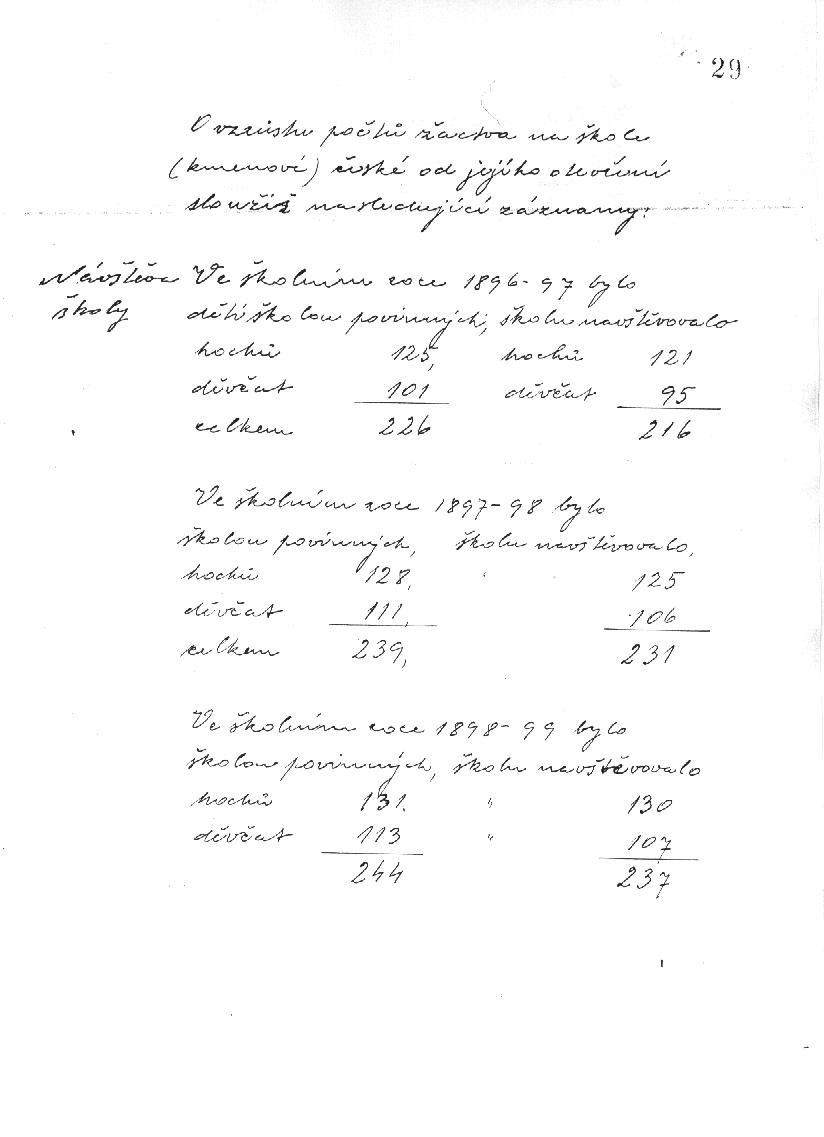 29
O vzrůstu počtů žactva na škole
(kmenové) české od jejího otevření
služiž následující záznamy:
Návštěva
školy
Ve školním roce 1896-97 bylo
dětí školou povinných, školu navštěvovalo
hochů 125, hochů 121
děvčat 101 děvčat 95
celkem 226 216
Ve školním roce 1897-98 bylo
školou povinných, školu navštěvovalo,
hochů 128, " 125
děvčat 111, 106
celkem 239, 231
Ve školním roce 1898-99 bylo
školou povinných, školu navštěvovalo
hochů 131. " 130
děvčat 113 " 107
244 237